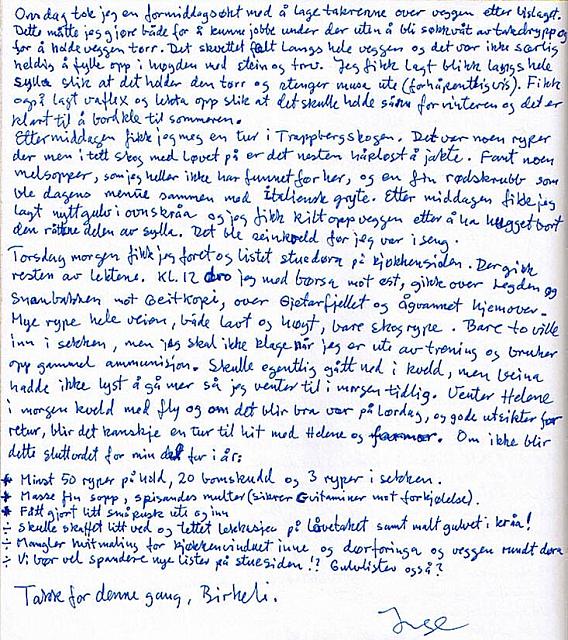 Onsdag tok jeg en formiddagsøkt med å lage takrenne over veggen etter bislaget.
Dette måtte jeg gjøre både for å kunne jobbe under der uten å bli søkkvåt av takdrypp og
for å holde veggen tørr. Det skvettet falt langs hele veggen og det var ikke særlig
heldig å fylle opp i høyden med stein og torv. Jeg fikk lagt blikk langs hele
sylla slik at det holder den tørr og stenger musa ute (forhåpentligvis). Fikk
også lagt vaflex og lekta opp slik at det skulle holde sånn for vinteren og det er
klart til å bordkle til sommeren.
Ettermiddagen fikk jeg meg en tur i Trappbergskogen. Det var noen ryper
der men i tett skog med løvet på er det nesten håpløst å jakte. Fant noen
melsopper, som jeg heller ikke har funnet før her, og en fin rødskrubb som
ble dagens menue sammen med italiensk gryte. Etter middagen fikk jeg
lagt nytt gulv i ovnskråa og jeg fikk kilt opp veggen etter å ha hugget bort
den råtne delen av sylla. Det ble seinkveld før jeg var i seng.
Torsdag morgen fikk jeg foret og listet stuedøra på kjøkkensiden. Der gikk
resten av lektene. Kl. 12 dro jeg med børsa mot øst, gikk over Legden og
Svanbakken mot Geitkopi, over Gjetarfjellet og Ågvannet hjemover.
Mye rype hele veien, både lavt og høyt, bare skogrype. Bare to ville
inn i sekken, men jeg skal ikke klage når jeg er ute av trening og bruker
opp gammel ammunisjon. Skulle egentlig gått ned i kveld, men beina
hadde ikke lyst å gå mer så jeg venter til i morgen tidlig. Venter Helene
i morgen kveld med fly og om det blir bra vær på lørdag, og gode utsikter for
retur, blir det kanskje en tur til hit med Helene og farmor. Om ikke blir
dette sluttordet for min del for i år:
* Minst 50 ryper på hold, 20 bomskudd og 3 ryper i sekken.
* Masse fin sopp, spisandes multer (sikrer C vitaminer mot forkjølelse).
* Fått gjort litt småpusk ute og inn
÷ Skulle skaffet litt ved og tettet lekkasjen på låvetaket samt malt gulvet i kråa!
÷ Mangler hvitmaling for kjøkkenvinduet inne og dørforinga og veggen rundt døra
÷ Vi bør vel spandere nye lister på stuesiden!? Gulvlister også?
Takk for denne gang, Birkeli.